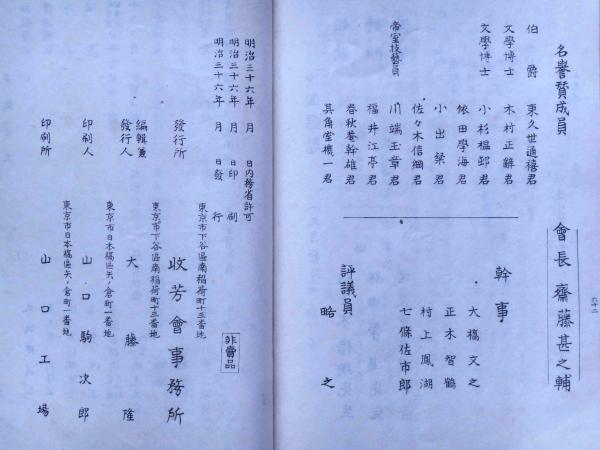 六十二
會長 齋藤甚之輔
幹事
大橋文之
正木智鶴
村上鳳湖
七條佐市郎
評議員 略之
名譽賛成員
伯爵 東久世通禧君
文學博士 木村正辭君
文學博士 小杉榲邨君
依田學海君
小出粲君
佐々木信綱君
帝室技藝員 川端玉章君
福井江亭君
春秋菴幹雄君
其角堂機一君
明治三十六年 月 日内務省許可
明治三十六年 月 日印刷
明治三十六年 月 日發行
非賣品
東京市下谷區南稲荷町十三番地
發行所 收芳會事務所
東京市下谷區南稲荷町十三番地
編輯兼發行人 大藤隆
東京市日本橋區矢ノ倉町一番地
印刷人 山口駒次郎
東京市日本橋區矢ノ倉町一番地
印刷所 山口工場